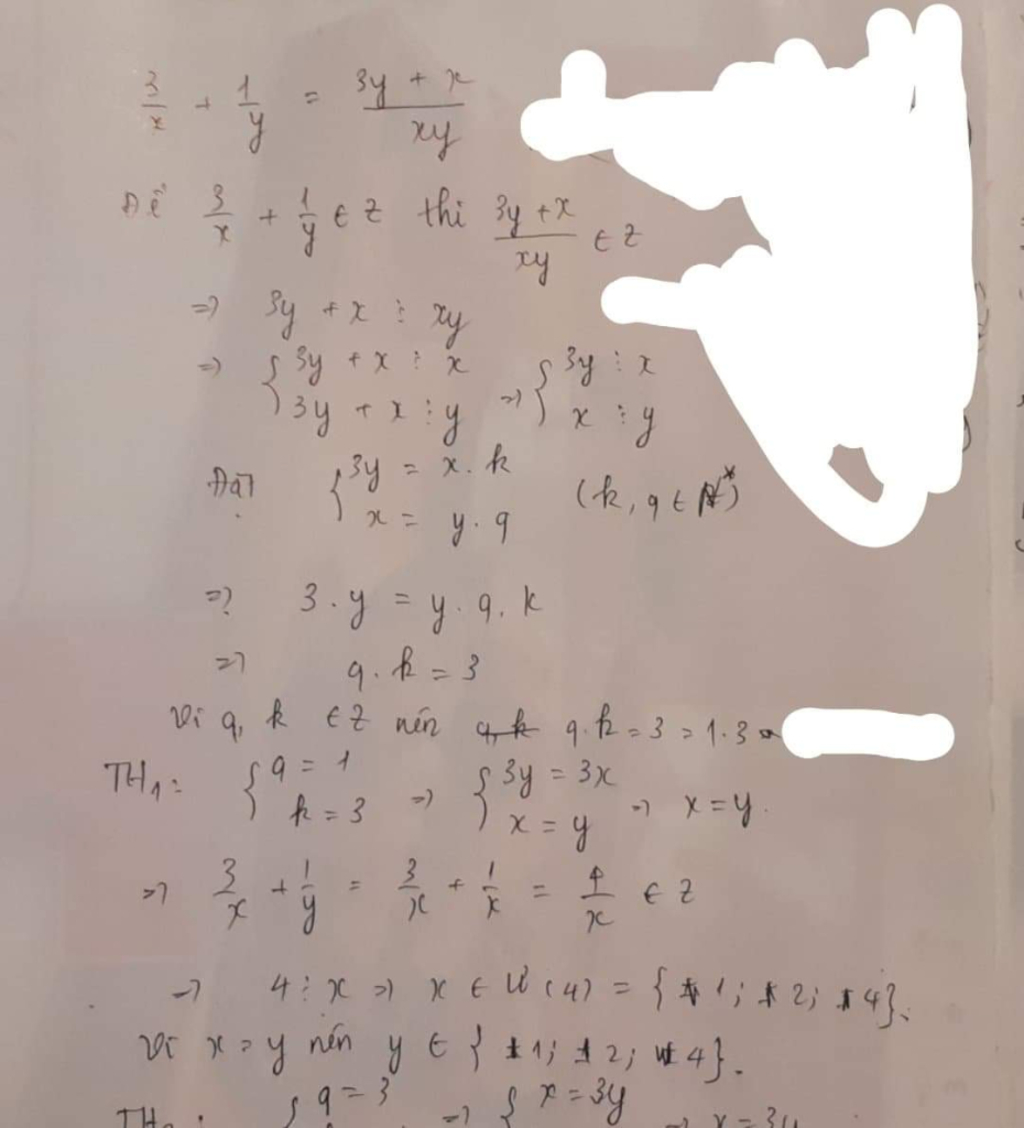 3/x + 1/y = (3y + x)/xy
Để 3/x + 1/y ∈ Z thì (3y + x)/xy ∈ Z
=> 3y + x ⋮ xy
=> { 3y + x ⋮ x ; 3y + x ⋮ y => { 3y ⋮ x ; x ⋮ y
Đặt { 3y = x . k ; x = y . q (k, q ∈ N*)
=> 3 . y = y . q . k
=> q . k = 3
Vì q, k ∈ Z nên q . k = 3 = 1 . 3
TH1: { q = 1 ; k = 3 => { 3y = 3x ; x = y => x = y.
=> 3/x + 1/y = 3/x + 1/x = 4/x ∈ Z
=> 4 ⋮ x => x ∈ Ư(4) = { 1; 2; 4}.
Vì x = y nên y ∈ { 1; 2; 4}.
TH2: { q = 3 => { x = 3y => x = 3y